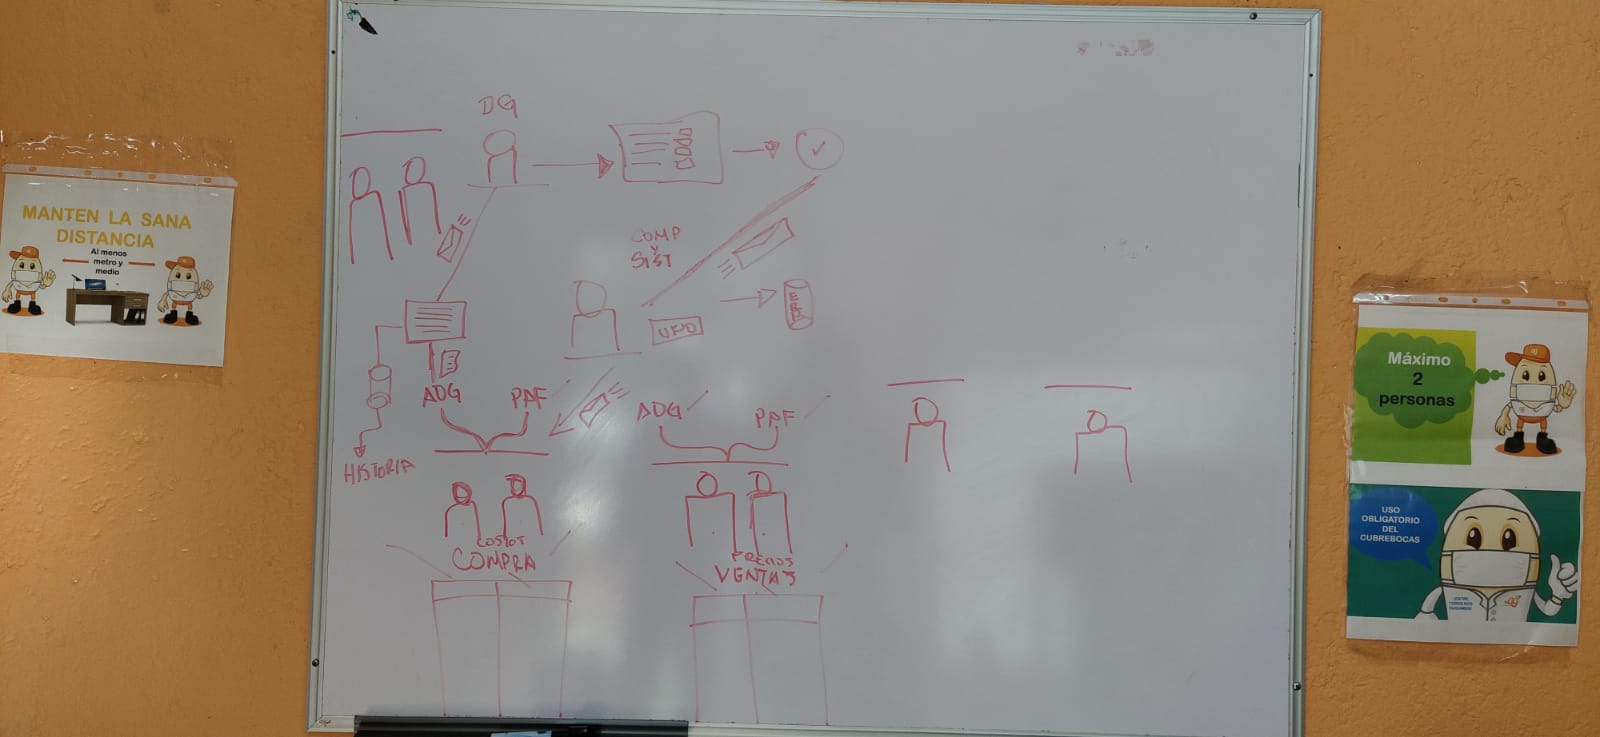 MANTEN LA SANA
DISTANCIA
Al menos
metro y
medio
DG
COMP
Y
SIST
UPD
ERP
ADG
PAF
ADG
PAF
HISTORIA
COSTOS
COMPRA
PRECIOS
VENTAS
Máximo
2
personas
USO
OBLIGATORIO
DEL
CUBREBOCAS